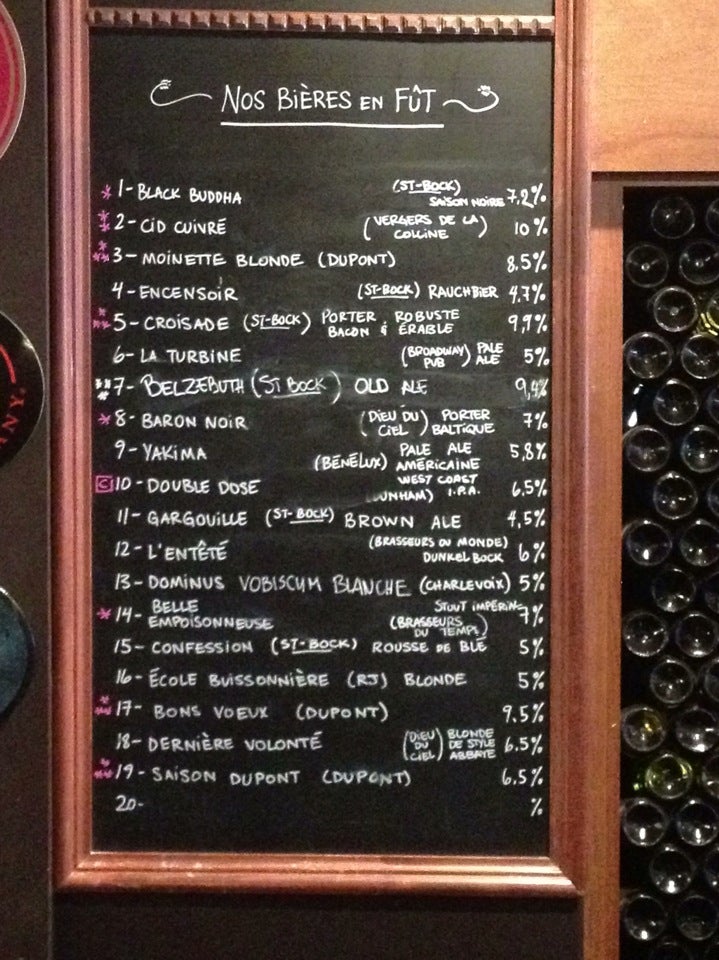 NOS BIÈRES EN FÛT
1- BLACK BUDDHA (ST-BOCK) SAISON NOIRE 7,2%
2- CID CUIVRÉ (VERGERS DE LA COLLINE) 10%
3- MOINETTE BLONDE (DUPONT) 8.5%
4- ENCENSOIR (ST-BOCK) RAUCHBIER 4,7%
5- CROISADE (ST-BOCK) PORTER ROBUSTE BACON & ÉRABLE 9,9%
6- LA TURBINE (BROADWAY PUB) PALE ALE 5%
7- BELZEBUTH (ST BOCK) OLD ALE 9,4%
8- BARON NOIR (DIEU DU CIEL) PORTER BALTIQUE 7%
9- YAKIMA (BÉNÉLUX) PALE ALE AMÉRICAINE 5,8%
10- DOUBLE DOSE (DUNHAM) WEST COAST I.P.A. 6,5%
11- GARGOUILLE (ST-BOCK) BROWN ALE 4,5%
12- L'ENTÊTÉ (BRASSEURS DU MONDE) DUNKEL BOCK 6%
13- DOMINUS VOBISCUM BLANCHE (CHARLEVOIX) 5%
14- BELLE EMPOISONNEUSE (BRASSEURS DU TEMPS) STOUT IMPÉRIAL 7%
15- CONFESSION (ST-BOCK) ROUSSE DE BLÉ 5%
16- ÉCOLE BUISSONNIÈRE (RJ) BLONDE 5%
17- BONS VOEUX (DUPONT) 9.5%
18- DERNIÈRE VOLONTÉ (DIEU DU CIEL) BLONDE DE STYLE ABBAYE 6.5%
19- SAISON DUPONT (DUPONT) 6.5%
20- %
C
NY.